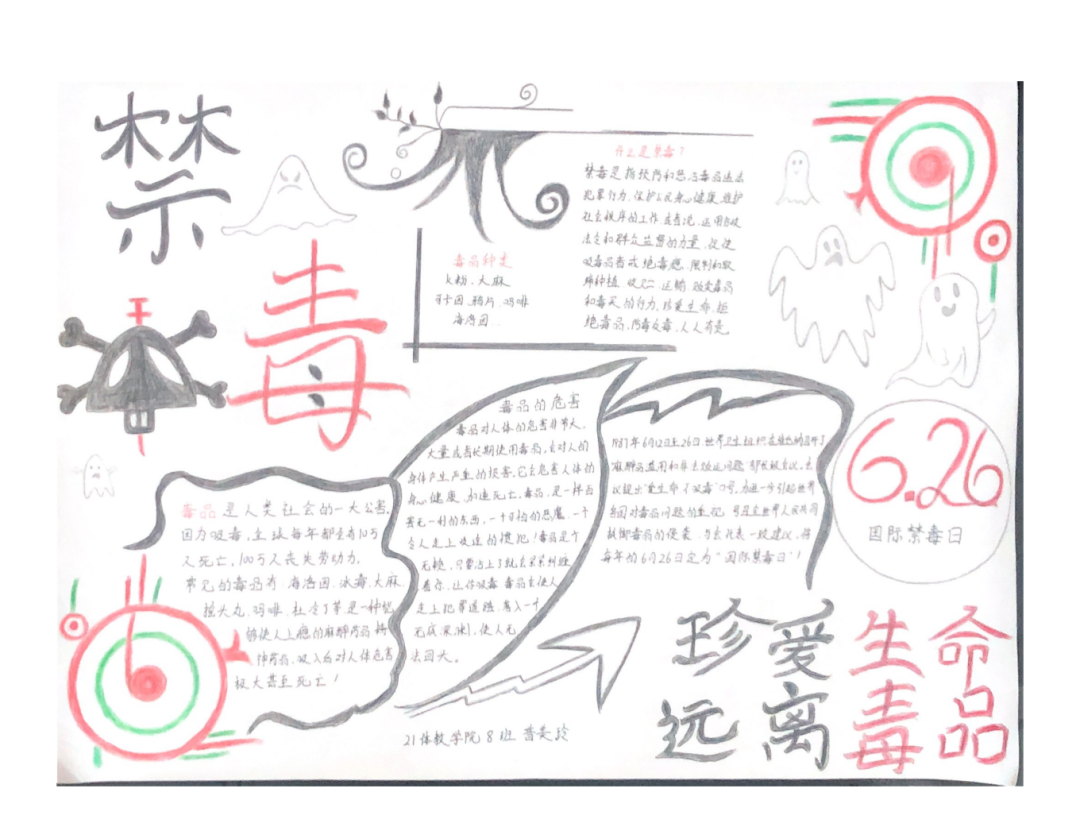 禁
毒
什么是禁毒？
禁毒是指预防和惩治毒品违法
犯罪行为，保护公民身心健康，维护
社会秩序的工作 或者说，运用
法令和群众监督的力量，促使
吸毒品者戒绝毒瘾，限制和取
种植 运输 贩卖毒品
和毒 的行为，珍爱生命 拒
绝毒品，防毒反毒，人人有责
毒品种类
K粉、大麻
卡因、鸦片、吗啡
海洛因...
毒品的危害
毒品对人体的危害非常大，
大量或者长期使用毒品，会对人的
身体产生严重的损害，它会危害人体的
身心健康，加速死亡，毒品，是一样百
害无一利的东西，一个可怕的恶魔，一个
令人走上歧途的 ！毒品是个
无 ，只要沾上了就会呆呆
着你，让你吸毒 毒品会使人
走上犯罪道路，卷入一个
无底深渊，使人无
法回头。
毒品是人类社会的一大公害，
因为吸毒，全球每年都会有10万
人死亡，100万人丧失劳动力，
常见的毒品有 海洛因、冰毒、大麻
摇头丸、吗啡、杜冷丁等是一种
够使人上瘾的麻醉药品
药品，吸入后对人体危害
极大甚至死亡！
1987年6月12日至26日，世界卫生组织在
麻醉品滥用和非法 问题 部长级会议，会
议提出"爱生命 不吸毒"口号，为进一步引起世界
各国对毒品问题的重视，号召全世界人民共同
抵御毒药的侵袭，与会代表一致建议，将
每年的6月26日定为"国际禁毒日"！
6.26
国际禁毒日
珍爱生命
远离毒品
21体教学院8班